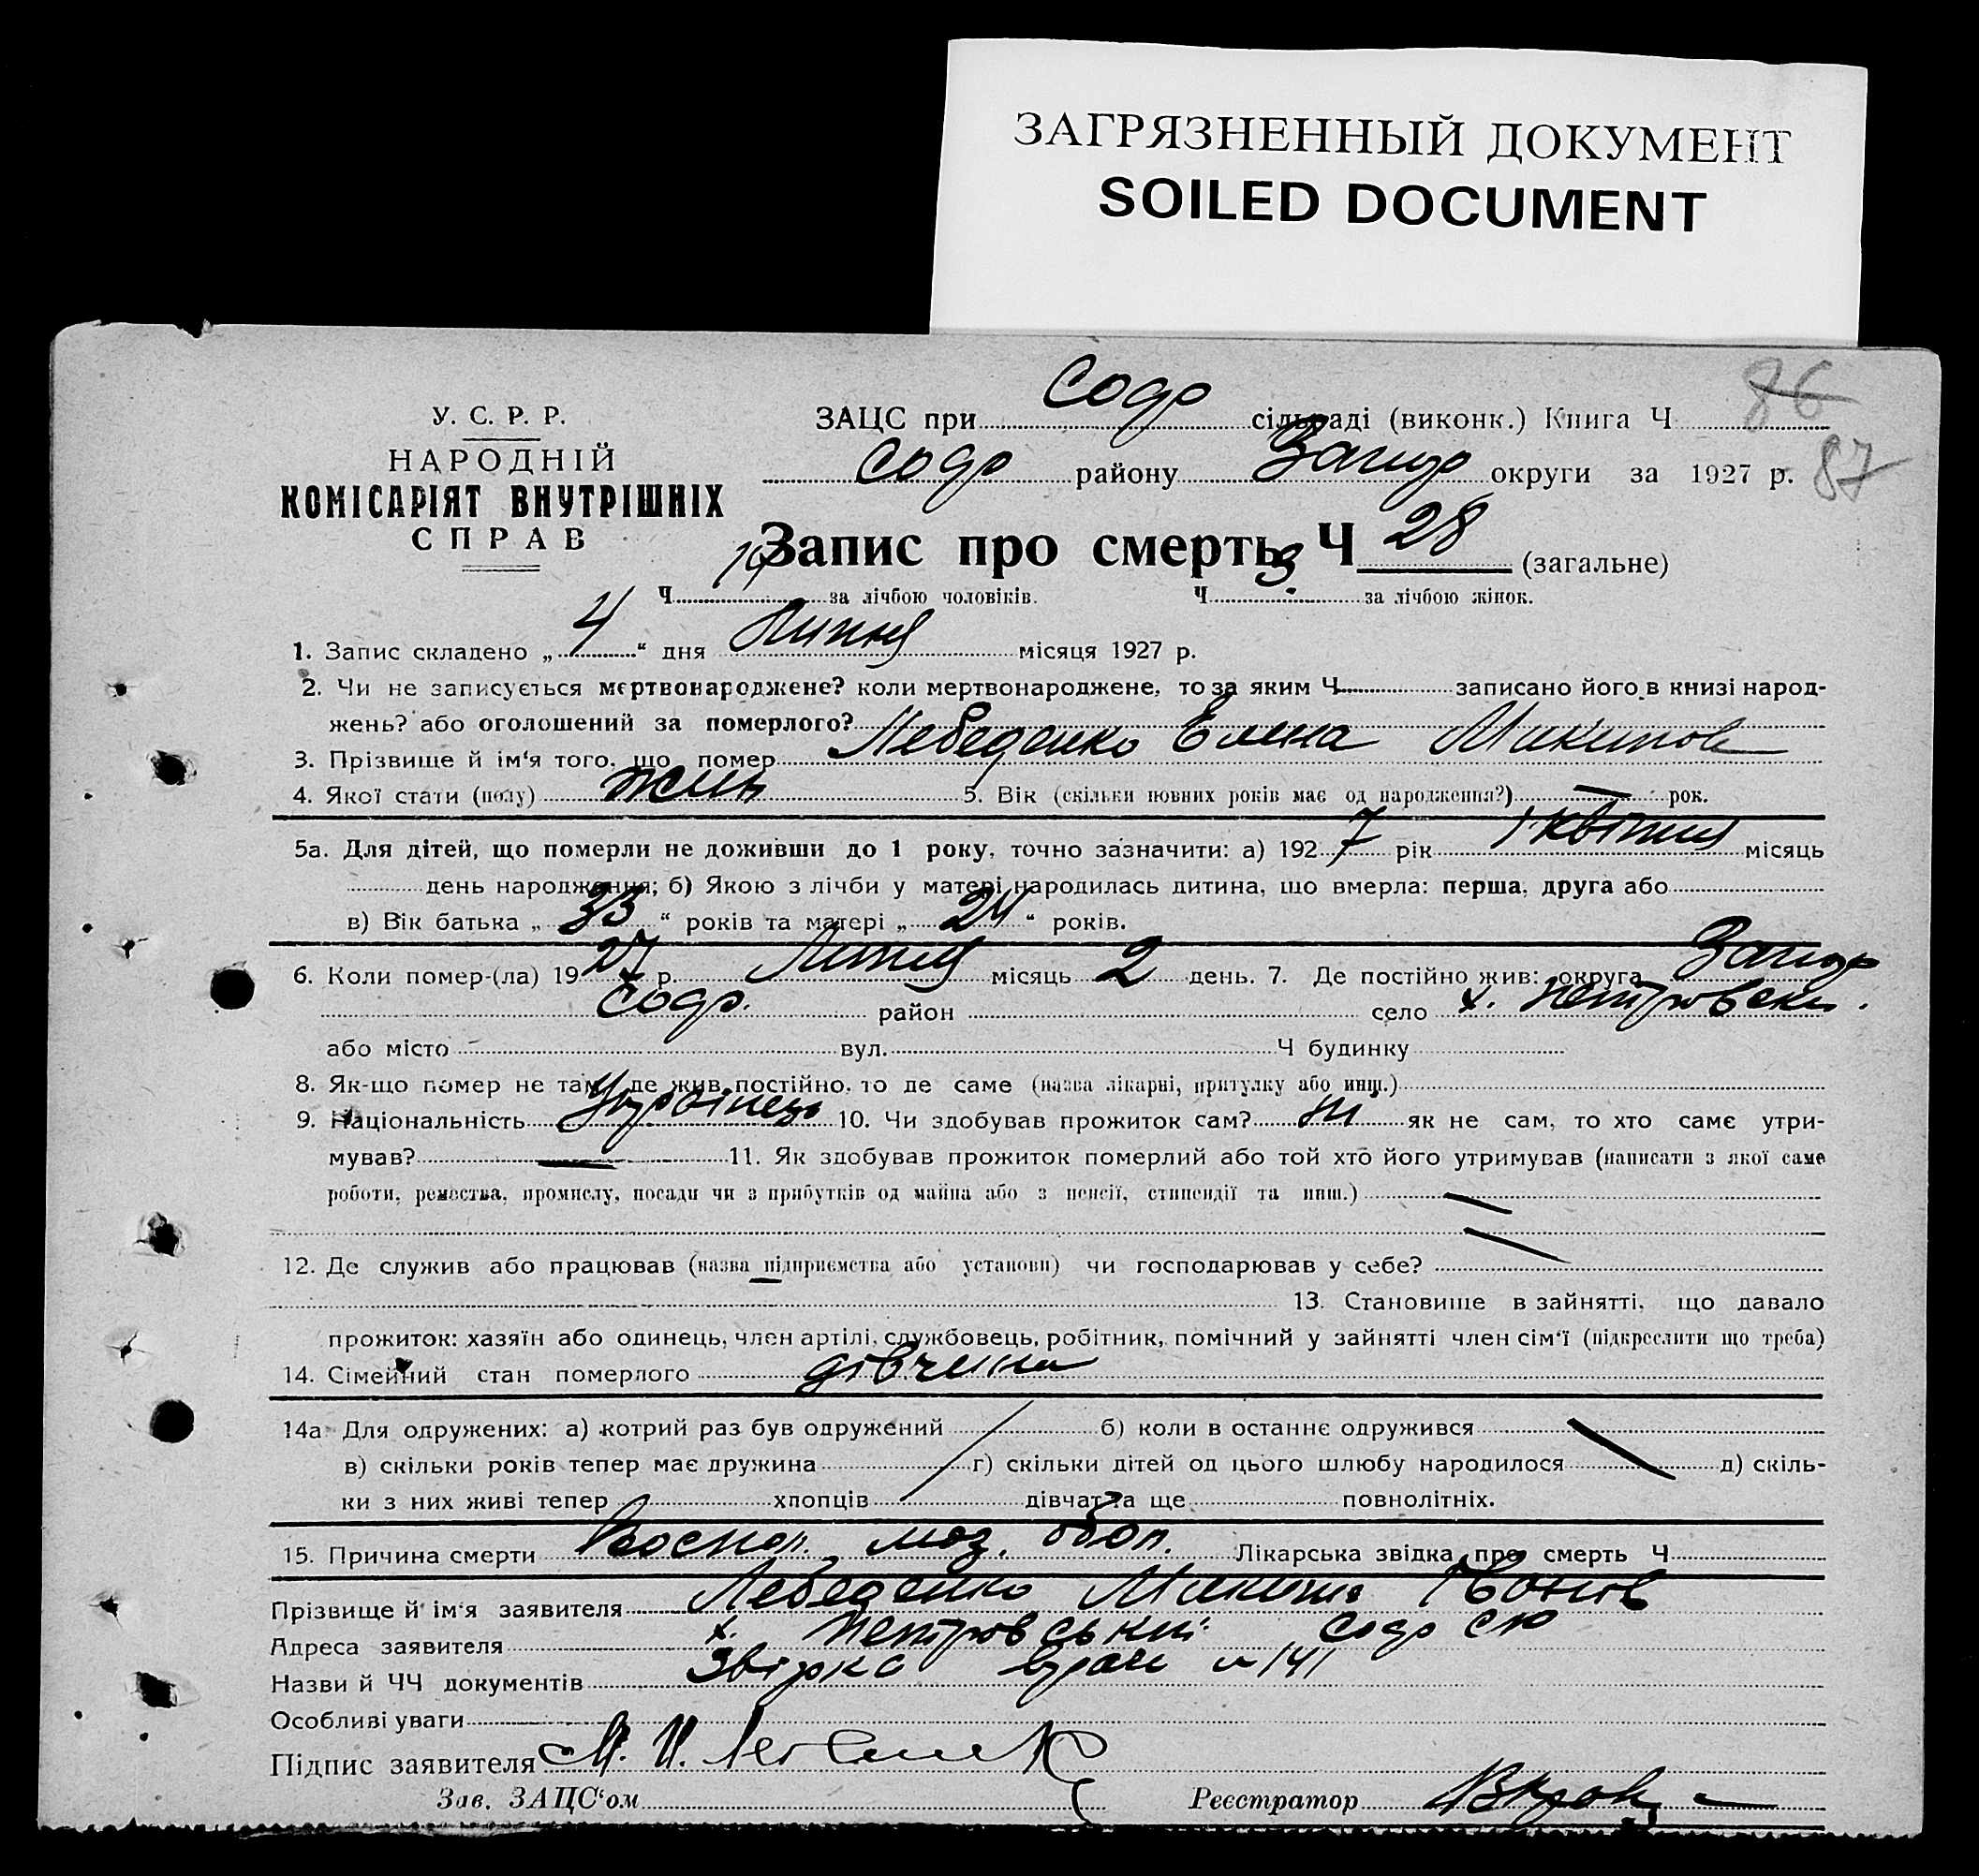 ЗАГРЯЗНЕННЫЙ ДОКУМЕНТ
SOILED DOCUMENT
86
87
У. С. Р. Р.
НАРОДНІЙ
КОМІСАРІЯТ ВНУТРІШНІХ
СПРАВ
ЗАЦС при Софр сільраді (виконк.) Книга Ч
Софр району Запор округи за 1927 р.
Запис про смерть Ч 28 (загальне)
Ч за лічбою чоловіків. Ч 3 за лічбою жінок.
1. Запис складено „ 4 “ дня Липня місяця 1927 р.
2. Чи не записується мертвонароджене? коли мертвонароджене, то за яким Ч записано його в книзі народ-
жень? або оголошений за померлого?
3. Прізвище й ім'я того, що помер Лебеденко Елена Микитов
4. Якої стати (полу) жін 5. Вік (скільки повних років має од народження?) — рок.
5а. Для дітей, що померли не доживши до 1 року, точно зазначити: а) 1927 рік 1 квітня місяць
день народження; б) Якою з лічби у матері народилась дитина, що вмерла: перша, друга або
в) Вік батька „ 33 “ років та матері „ 24 “ років.
6. Коли помер-(ла) 1927 р. Липня місяць 2 день. 7. Де постійно жив: округа Запор
Софр. район село х. Петровски.
або місто вул. Ч будинку
8. Як-що помер не там, де жив постійно, то де саме (назва лікарні, притулку або инш.)
9. Національність 10. Чи здобував прожиток сам? ні як не сам, то хто саме утри-
мував? — 11. Як здобував прожиток померлий або той хто його утримував (написати з якої саме
роботи, ремества, промислу, посади чи з прибутків од майна або з пенсії, стипендії та инш.)
12. Де служив або працював (назва підприємства або установи) чи господарював у себе?
13. Становище в зайнятті, що давало
прожиток: хазяїн або одинець, член артілі, службовець, робітник, помічний у зайнятті член сім'ї (підкреслити що треба)
14. Сімейний стан померлого дівчина
14а Для одружених: а) котрий раз був одружений б) коли в останнє одружився
в) скільки років тепер має дружина г) скільки дітей од цього шлюбу народилося д) скіль-
ки з них живі тепер хлопців дівчат та ще повнолітніх.
15. Причина смерти Воспал. моз. обол. Лікарська звідка про смерть Ч
Прізвище й ім'я заявителя Лебеденко Микита
Адреса заявителя х. Петровський Софр
Назви й ЧЧ документів 141
Особливі уваги
Підпис заявителя
Зав. ЗАЦС'ом Реєстратор